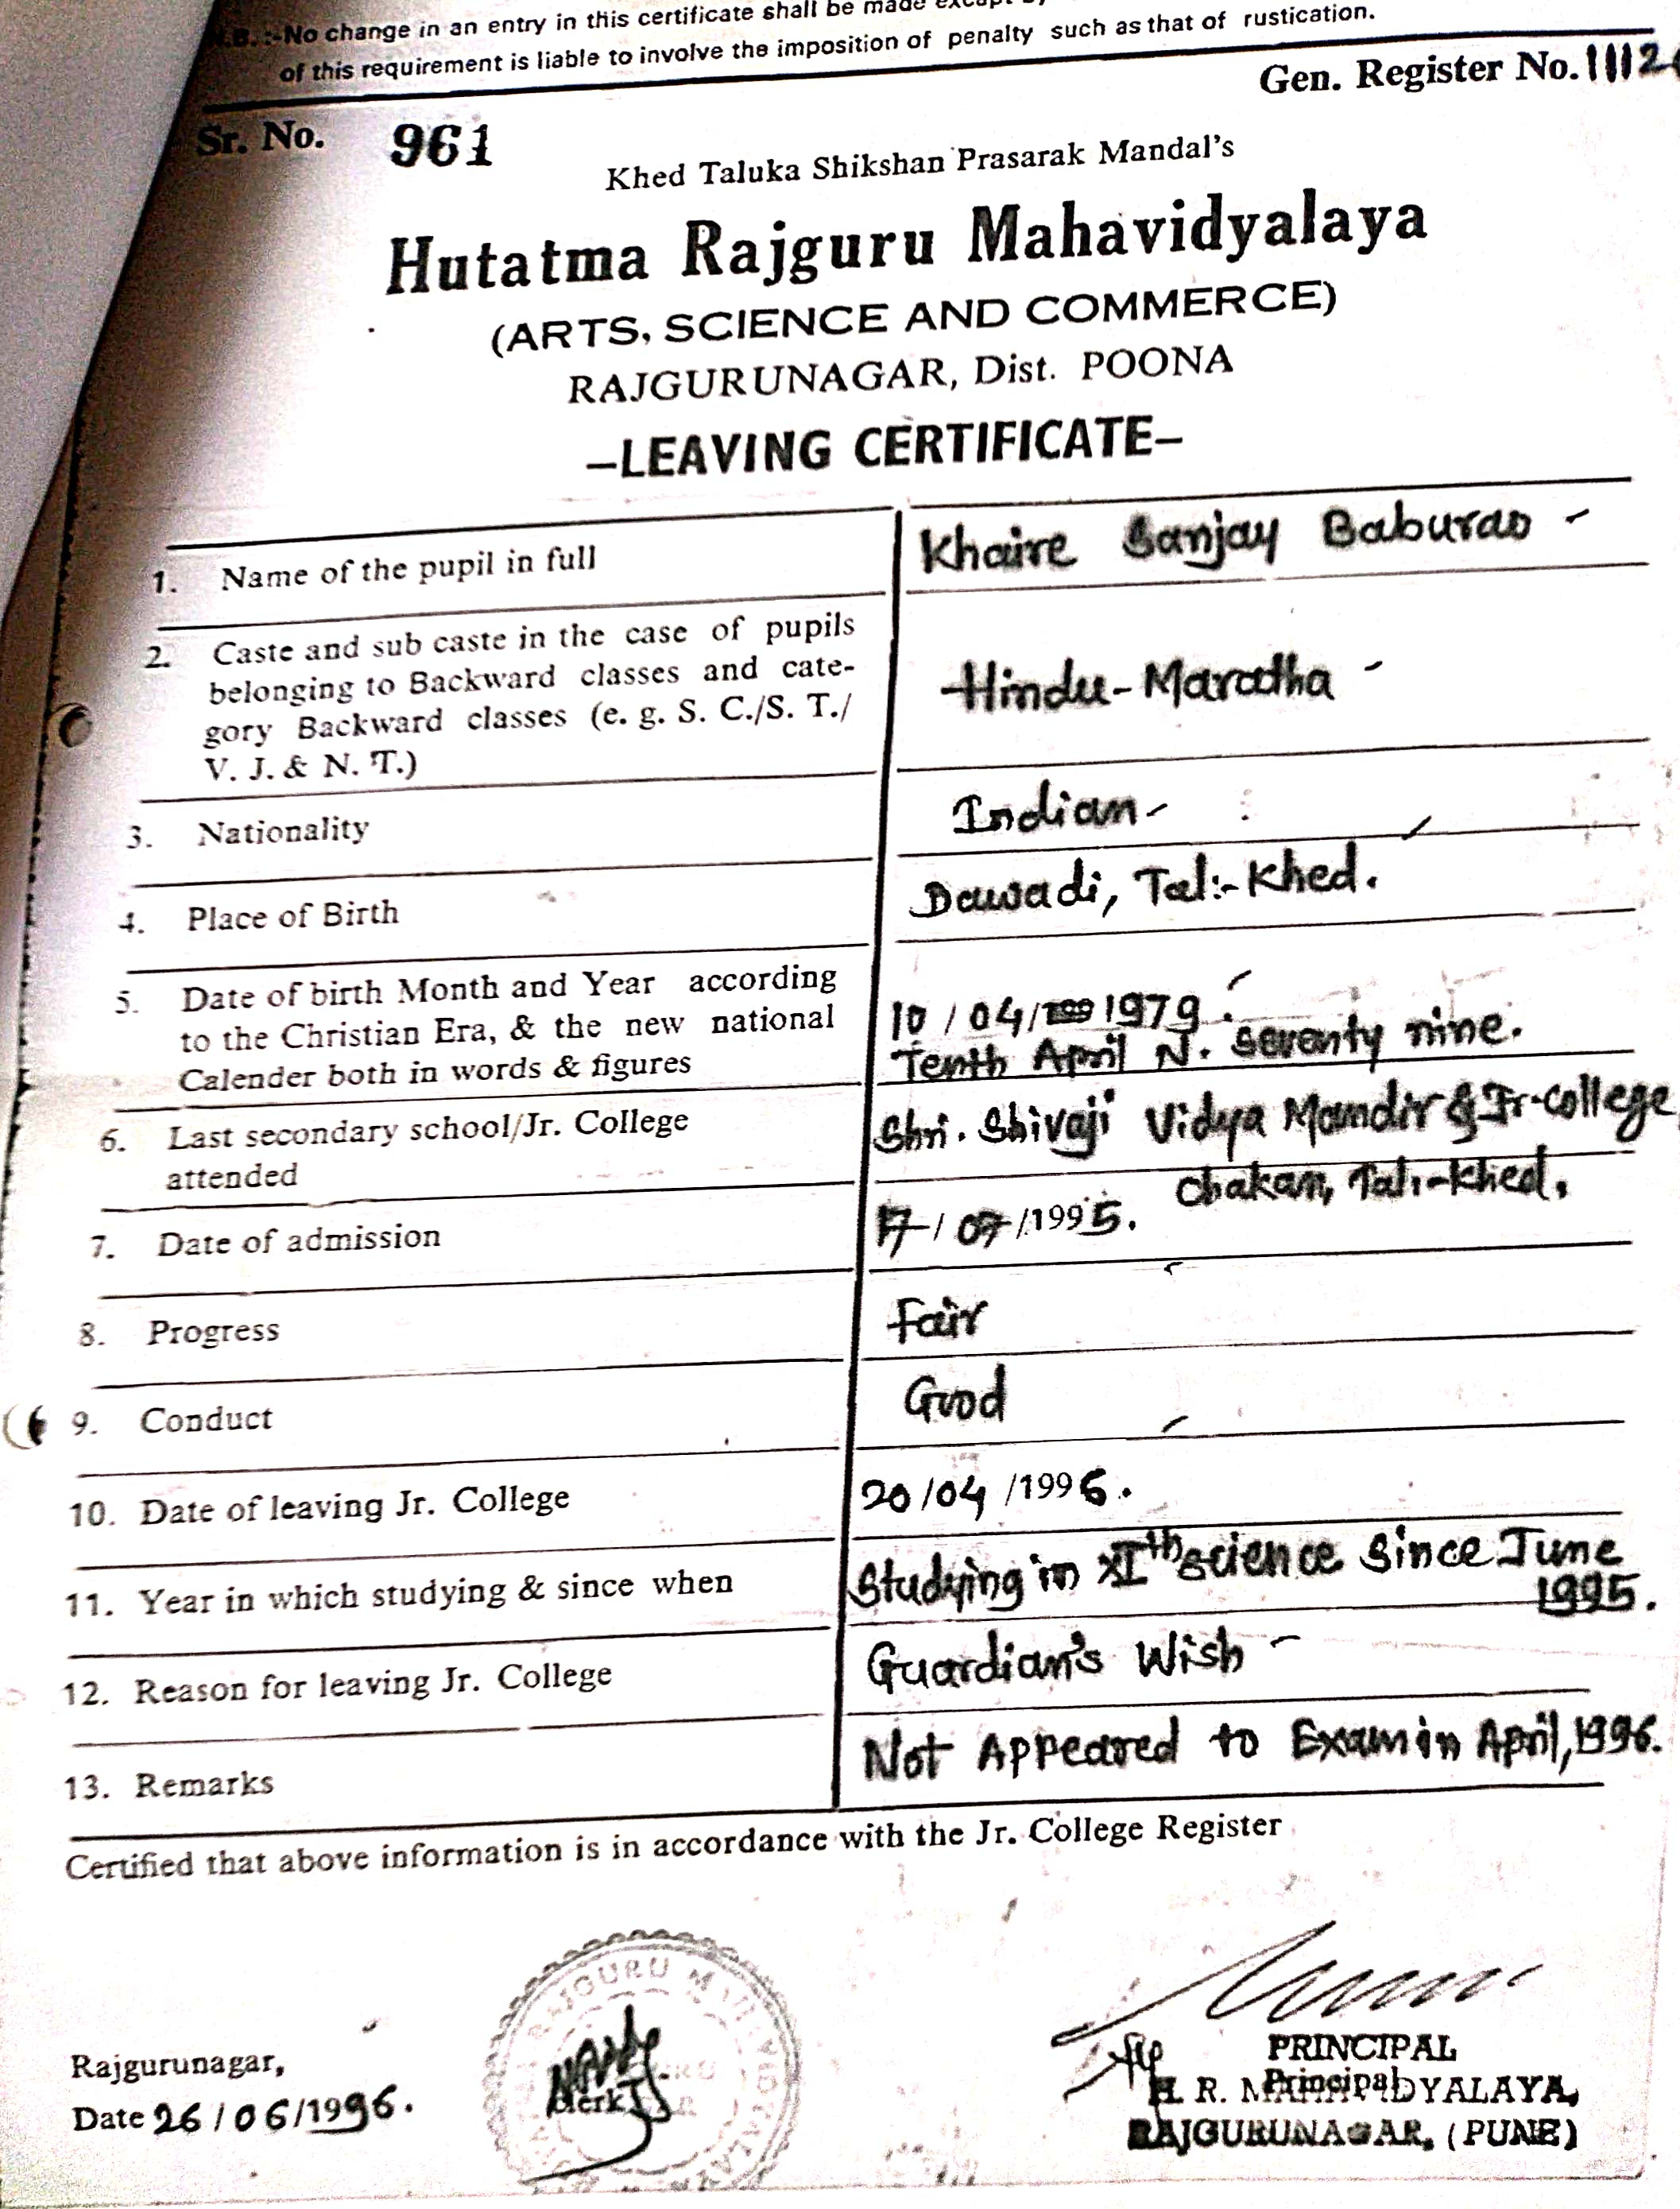 N.B. :-No change in an entry in this certificate shall be made except by
of this requirement is liable to involve the imposition of penalty such as that of rustication.
Gen. Register No. 1112
Sr. No. 961
Khed Taluka Shikshan Prasarak Mandal's
Hutatma Rajguru Mahavidyalaya
(ARTS, SCIENCE AND COMMERCE)
RAJGURUNAGAR, Dist. POONA
–LEAVING CERTIFICATE–
1. Name of the pupil in full Khaire Sanjay Baburao -
2. Caste and sub caste in the case of pupils
belonging to Backward classes and cate-
gory Backward classes (e. g. S. C./S. T./
V. J. & N. T.)
Hindu-Maratha -
3. Nationality Indian-
4. Place of Birth Dawadi, Tal:- Khed.
5. Date of birth Month and Year according
to the Christian Era, & the new national
Calender both in words & figures
10/04/1979.
Tenth April N. Seventy nine.
6. Last secondary school/Jr. College
attended
Shri. Shivaji Vidya Mandir & Jr-College
Chakan, Tal:-Khed.
7. Date of admission 17/07/1995.
8. Progress Fair
9. Conduct Good
10. Date of leaving Jr. College 20/04/1996.
11. Year in which studying & since when Studying in XIth Science Since June
1995.
12. Reason for leaving Jr. College Guardian's Wish -
13. Remarks Not Appeared to Exam in April, 1996.
Certified that above information is in accordance with the Jr. College Register
RAJGURU
Rajgurunagar,
Date 26/06/1996.
Clerk
PRINCIPAL
Principal
H. R. MAHAVIDYALAYA,
RAJGURUNAGAR, (PUNE)